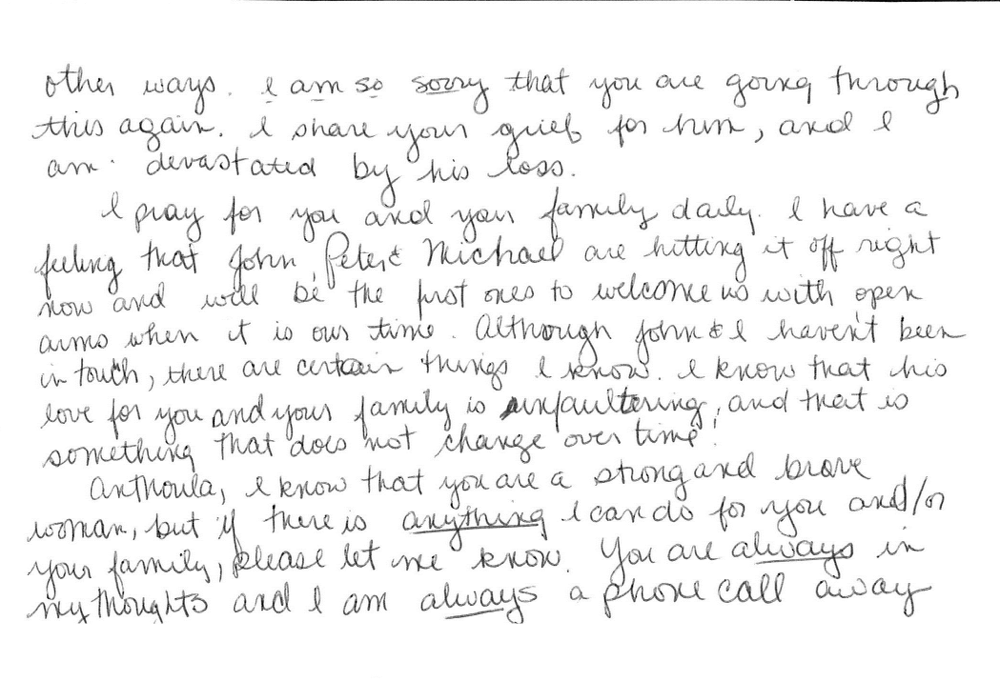 other ways. I am so sorry that you are going through
this again. I share your grief for him, and I
am devastated by his loss.
I pray for you and your family daily. I have a
feeling that John, Peter & Michael are hitting it off right
now and will be the first ones to welcome us with open
arms when it is our time. Although John & I haven't been
in touch, there are certain things I know. I know that his
love for you and your family is unfaultering, and that is
something that does not change over time!
Anthoula, I know that you are a strong and brave
woman, but if there is anything I can do for you and/or
your family, please let me know. You are always in
my thoughts and I am always a phone call away